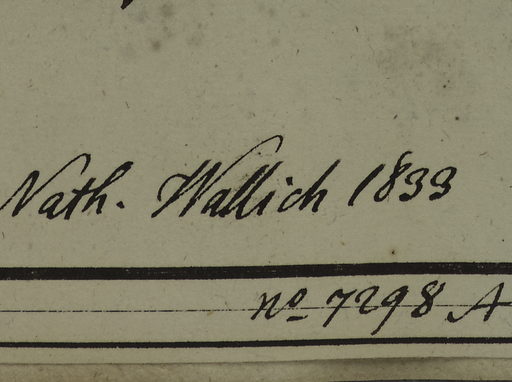 Nath. Wallich 1833
no 7298 A